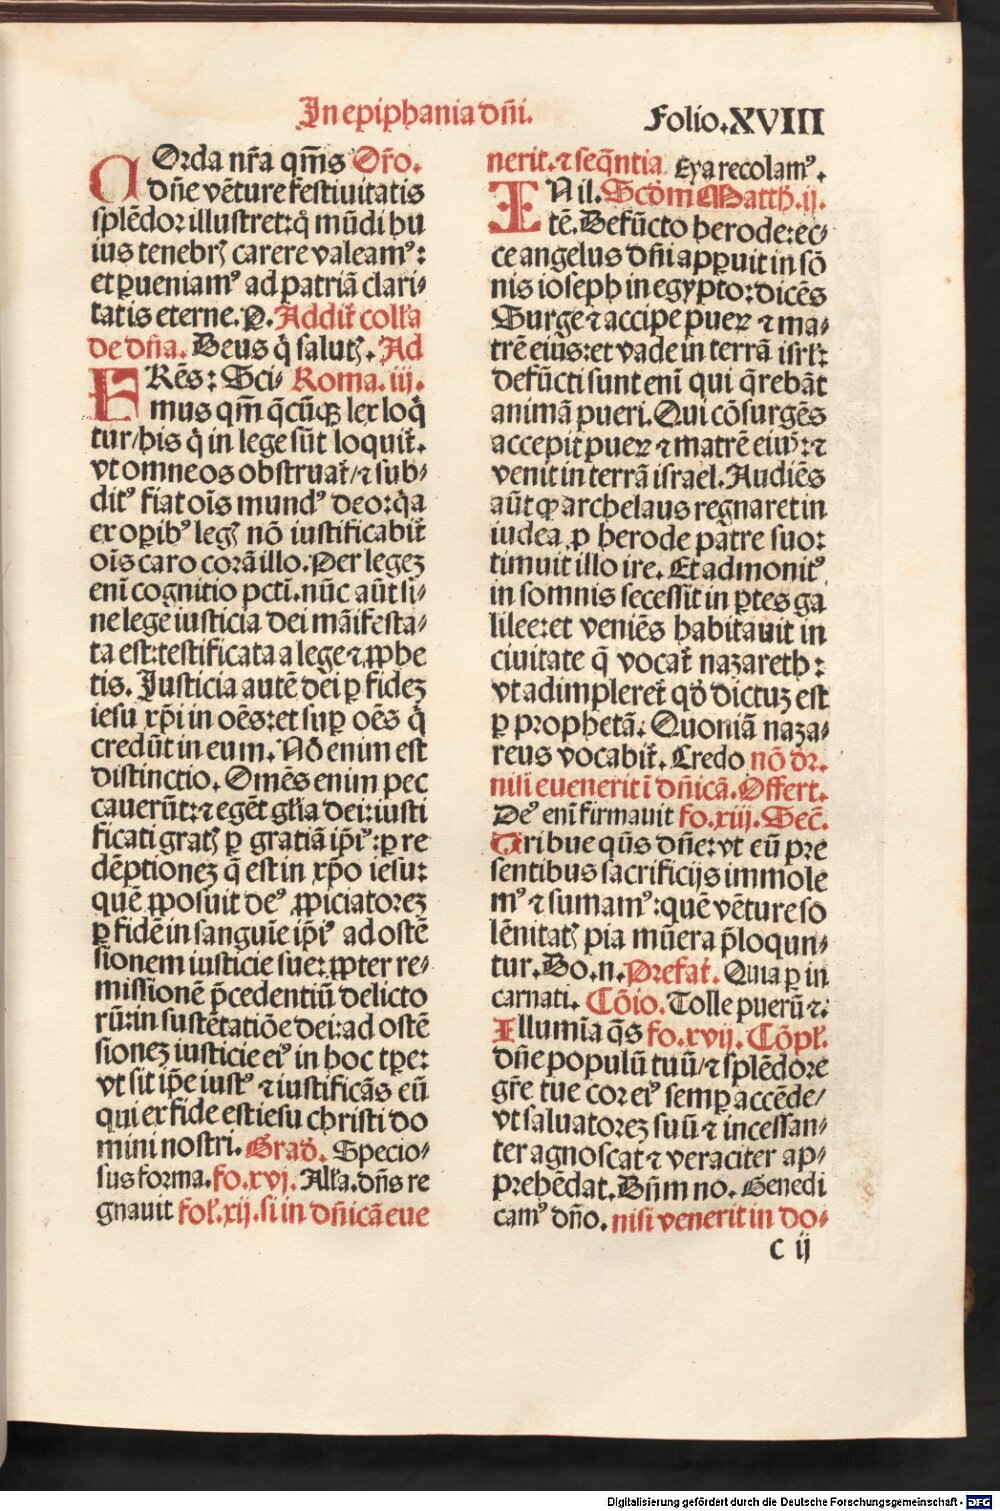 In epiphania dñi.
Folio.XVIII
COrda nr̃a qm̃s Or̃o.
dñe vẽture festiuitatis
splẽdor illustret: q̊ mũdi hu
ius tenebrꝭ carere valeamꝰ:
et ꝑueniamꝰ ad patriã clari⸗
tatis eterne. P. Addit̃ coll'a
de dña. Deus q̊ salutꝭ. Ad
ERẽs: Sci⸗ Roma. iij.
mus qm̃ q̃cũqꝫ lex loq̊
tur/his q̊ in lege sũt loquit̃.
vt omne os obstruat̃/⁊ sub⸗
ditꝰ fiat oĩs mundꝰ deo: q̊a
ex oꝑibꝰ legꝭ nõ iustificabit̃
oĩs caro corã illo. Per legeꝫ
enĩ cognitio pcti. nũc aũt si⸗
ne lege iusticia dei mãifesta⸗
ta est: testificata a lege ⁊ ꝓphe
tis. Iusticia autẽ dei ꝑ fideꝫ
iesu xp̃i in oẽs: et suꝑ oẽs q̊
credũt in eum. Nõ enim est
distinctio. Omẽs enim pec
cauerũt: ⁊ egẽt gl'ia dei: iusti
ficati gratꝭ ꝑ gratiã ip̃iꝰ: ꝑ re
dẽptioneꝫ q̃ est in xp̃o iesu:
quẽ ꝓposuit deꝰ ꝓpiciatoreꝫ
ꝑ fidẽ in sanguĩe ip̃iꝰ ad ostẽ
sionem iusticie sue: ꝓpter re⸗
missionẽ p̃cedentiũ delicto
rũ: in sustẽtatiõe dei: ad ostẽ
sioneꝫ iusticie eiꝰ in hoc tꝑe:
vt sit ip̃e iustꝰ ⁊ iustificãs eũ
qui ex fide est iesu christi do
mini nostri. Grad̃. Specio⸗
sus forma. fo.xvj. All'a. dñs re
gnauit fol'.xij. si in dñicã eue
nerit. ⁊ seq̃ntia Eya recolamꝰ.
IN il. Scd̃m Matth. ij.
tẽ. Defũcto herode: ec⸗
ce angelus dñi apparuit in sõ
nis ioseph in egypto: dicẽs
Surge ⁊ accipe pueꝝ ⁊ ma⸗
trẽ eius: et vade in terrã isrl':
defũcti sunt enĩ qui q̃rebãt
animã pueri. Qui cõsurgẽs
accepit pueꝝ ⁊ matrẽ eiuꝰ: ⁊
venit in terrã israel. Audiẽs
aũt ꝙ archelaus regnaret in
iudea p herode pãtre suo:
timuit illo ire. Et admonitꝰ
in somnis secessit in ꝑtes ga
lilee: et veniẽs habitauit in
ciuitate q̃ vocat̃ nazareth:
vt adimpleret̃ qd̃ dictuꝫ est
ꝑ prophetã. Quoniã naza⸗
reus vocabit̃. Credo nõ dr̃.
nisi euenerit ĩ dñicã. Offert.
Deꝰ enĩ firmauit fo.xiij. Sec̃.
Tribue qũs dñe: vt eũ pre
sentibus sacrificijs immole
mꝰ ⁊ sumamꝰ: quẽ vẽture so
lẽnitatꝭ pia mũera p̃loqun⸗
tur. Do.n. Prefat̃. Quia ꝑ in
carnati. Cõio. Tolle puerũ ⁊:
Illumĩa q̃s fo.xvij. Cõpl'.
dñe populũ tuũ/⁊ splẽdore
gr̃e tue cor eiꝰ semꝑ accẽde/
vt saluatoreꝫ suũ ⁊ incessan⸗
ter agnoscat ⁊ veraciter ap⸗
prehẽdat. Dñm no. Benedi
camꝰ dño. nisi venerit in do⸗
c ij
Digitalisierung gefördert durch die Deutsche Forschungsgemeinschaft - DFG